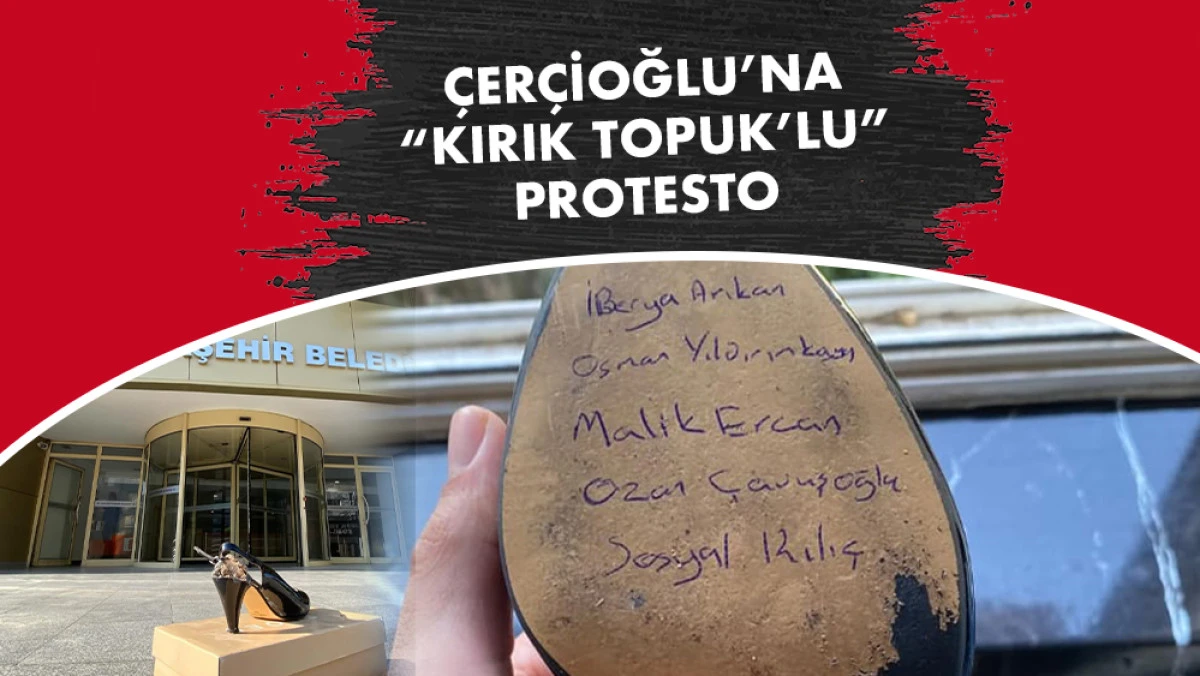 ÇERÇİOĞLU’NA
“KIRIK TOPUK’LU”
PROTESTO
ŞEHİR BELED
İBerya Arıkan
Osman Yıldırımkaya
Malik Ercan
Ozan Çavuşoğlu
Sosyal Kılıç